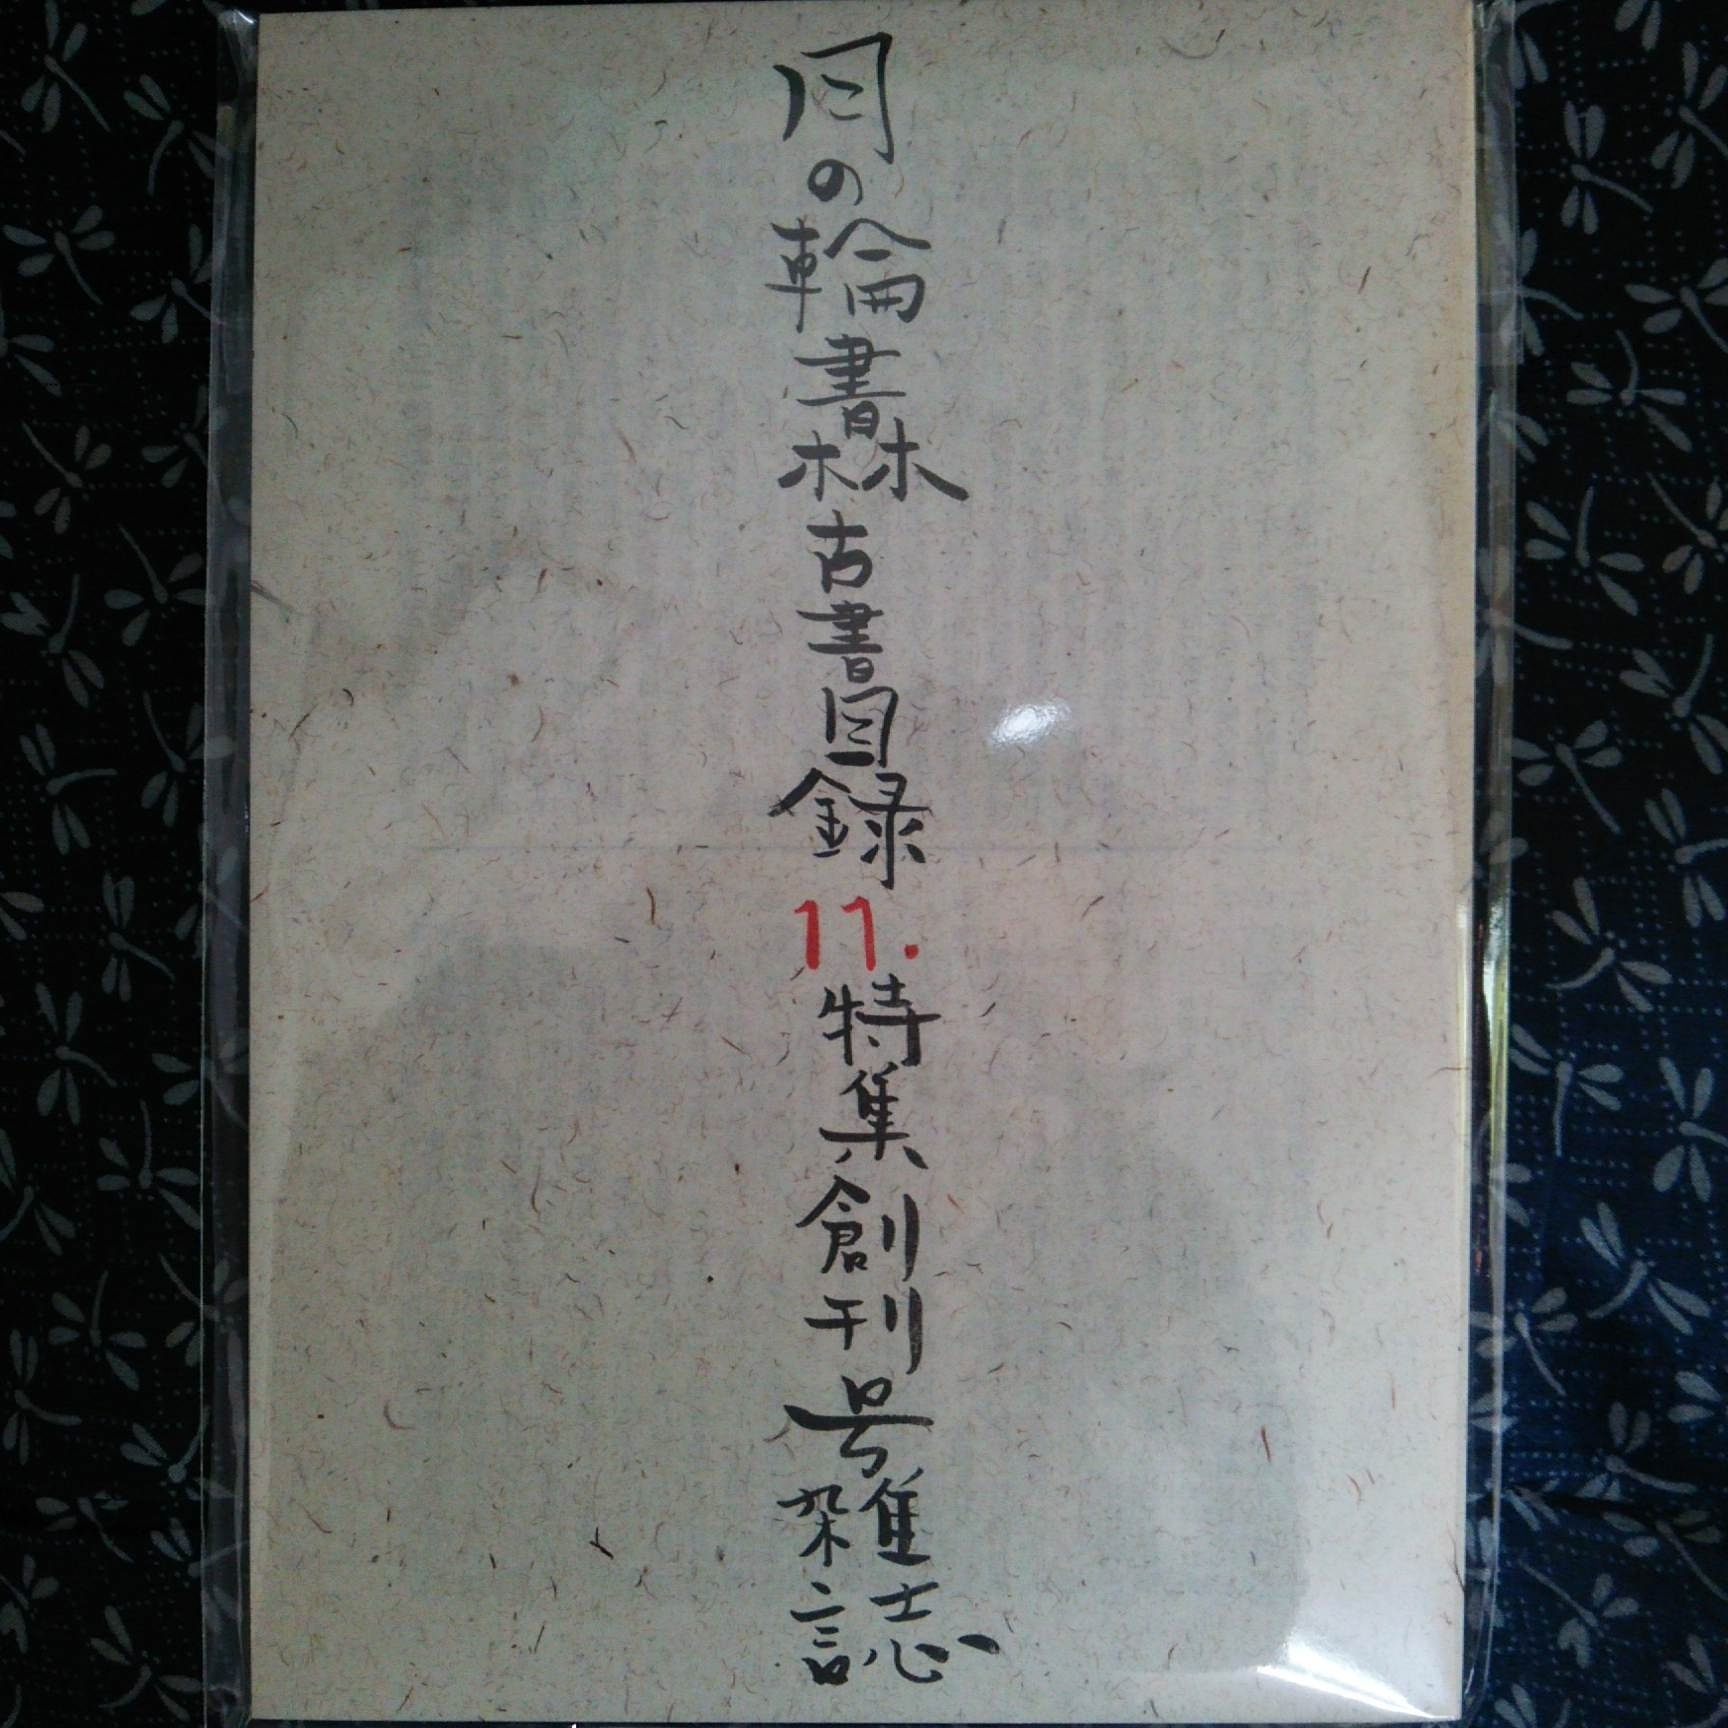 月の輪書林古書目録11.特集創刊号雑誌